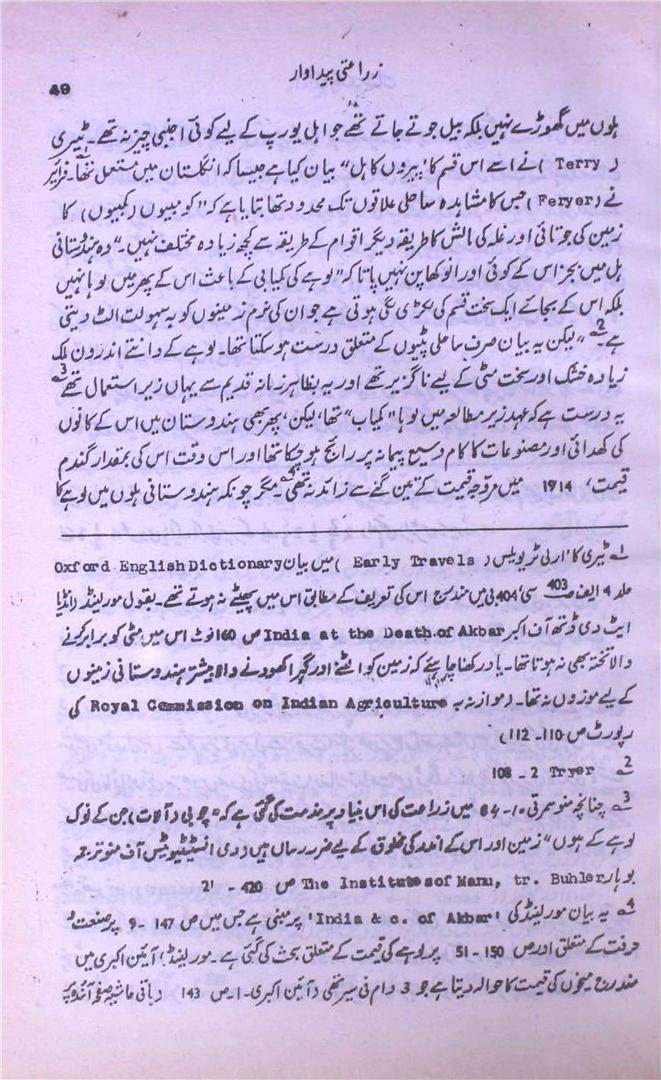 زراعتی پیداوار
49
ہلوں میں گھوڑے نہیں بلکہ بیل جوتے جاتے تھے جو اہل یورپ کے لیے کوئی اجنبی چیز نہ تھے۔ ٹیری
( Terry ) نے اسے اس قسم کا "پیروں کا ہل" بیان کیا ہے جیسا کہ انگلستان میں مستعمل تھا۔ فرائیر
نے ( Feryer ) جس کا مشاہدہ ساحلی علاقوں تک محدود تھا بتایا ہے کہ "کومبیوں (کمبیوں) کا
زمین کی جوتائی اور غلہ کی مالش کا طریقہ دیگر اقوام کے طریقہ سے کچھ زیادہ مختلف نہیں۔" وہ ہندوستانی
ہل میں بجز اس کے کوئی اور انوکھا پن نہیں پاتا کہ "لوہے کی کمیابی کے باعث اس کے پھر میں لوہا نہیں
بلکہ اس کے بجائے ایک سخت قسم کی لکڑی لگی ہوتی ہے جو ان کی نرم زمینوں کو بہ سہولت الٹ دیتی
ہے۔2 "لیکن یہ بیان صرف ساحلی پٹیوں کے متعلق درست ہو سکتا تھا۔ لوہے کے دانتے اندرون ملک
زیادہ خشک اور سخت مٹی کے لیے ناگزیر تھے اور یہ بظاہر زمانہ قدیم سے یہاں زیر استعمال تھے3
یہ درست ہے کہ عہد زیر مطالعہ میں لوہا "کمیاب" تھا، لیکن، پھر بھی ہندوستان میں اس کے کانوں
کی کھدائی اور مصنوعات کا کام وسیع پیمانہ پر رائج ہو چکا تھا اور اس وقت اس کی بمقدار گندم
قیمت، 1914 میں مروجہ قیمت کے تین گنے سے زائد نہ تھی4۔ مگر چونکہ ہندوستانی ہلوں میں لوہے کا
1 ٹیری کا 'ارلی ٹریویلس ( Early Travels ) میں بیان Oxford English Dictionary
جلد 4 الف ص 403 سی، 404 بی میں مندرج اس کی تعریف کے مطابق اس میں پہیے نہ ہوتے تھے۔ بقول مورلینڈ (انڈیا
ایٹ دی ڈتھ آف اکبر India at the Death of Akbar ص 160 نوٹ اس میں مٹی کو برابر کرنے
والا تختہ بھی نہ ہوتا تھا۔ یاد رکھنا چاہئے کہ زمین کو الٹنے اور گہرا کھودنے والا بیشتر ہندوستانی زمینوں
کے لیے موزوں نہ تھا۔ (موازنہ بہ Royal Commission on Indian Agriculture کی
رپورٹ ص 110- 112)
2 Tryer 2 - 108
3 چنانچہ منوسمرتی 10 - 84 میں زراعت کی اس بنیاد پر مذمت کی گئی ہے کہ "چوبی (آلات) جن کے نوک
لوہے کے ہوں" زمین اور اس کے اندر کی مخلوق کے لیے ضرر رساں ہیں (دی انسٹیٹیوٹس آف منو ترجمہ
بوہلر The Institutes of Manu, tr. Buhler ص 420 - 21
4 یہ بیان مورلینڈ کی 'India & c. of Akbar' پر مبنی ہے جس میں ص 147 - 9 پر صنعت و
حرفت کے متعلق اور ص 150 - 51 پر لوہے کی قیمت کے متعلق بحث کی گئی ہے۔ مورلینڈ، آئین اکبری میں
مندرج میخوں کی قیمت کا حوالہ دیتا ہے جو 3 دام فی سیر تھی (آئین اکبری۔ 1۔ ص 143 (باقی حاشیہ صفحہ آئندہ پر